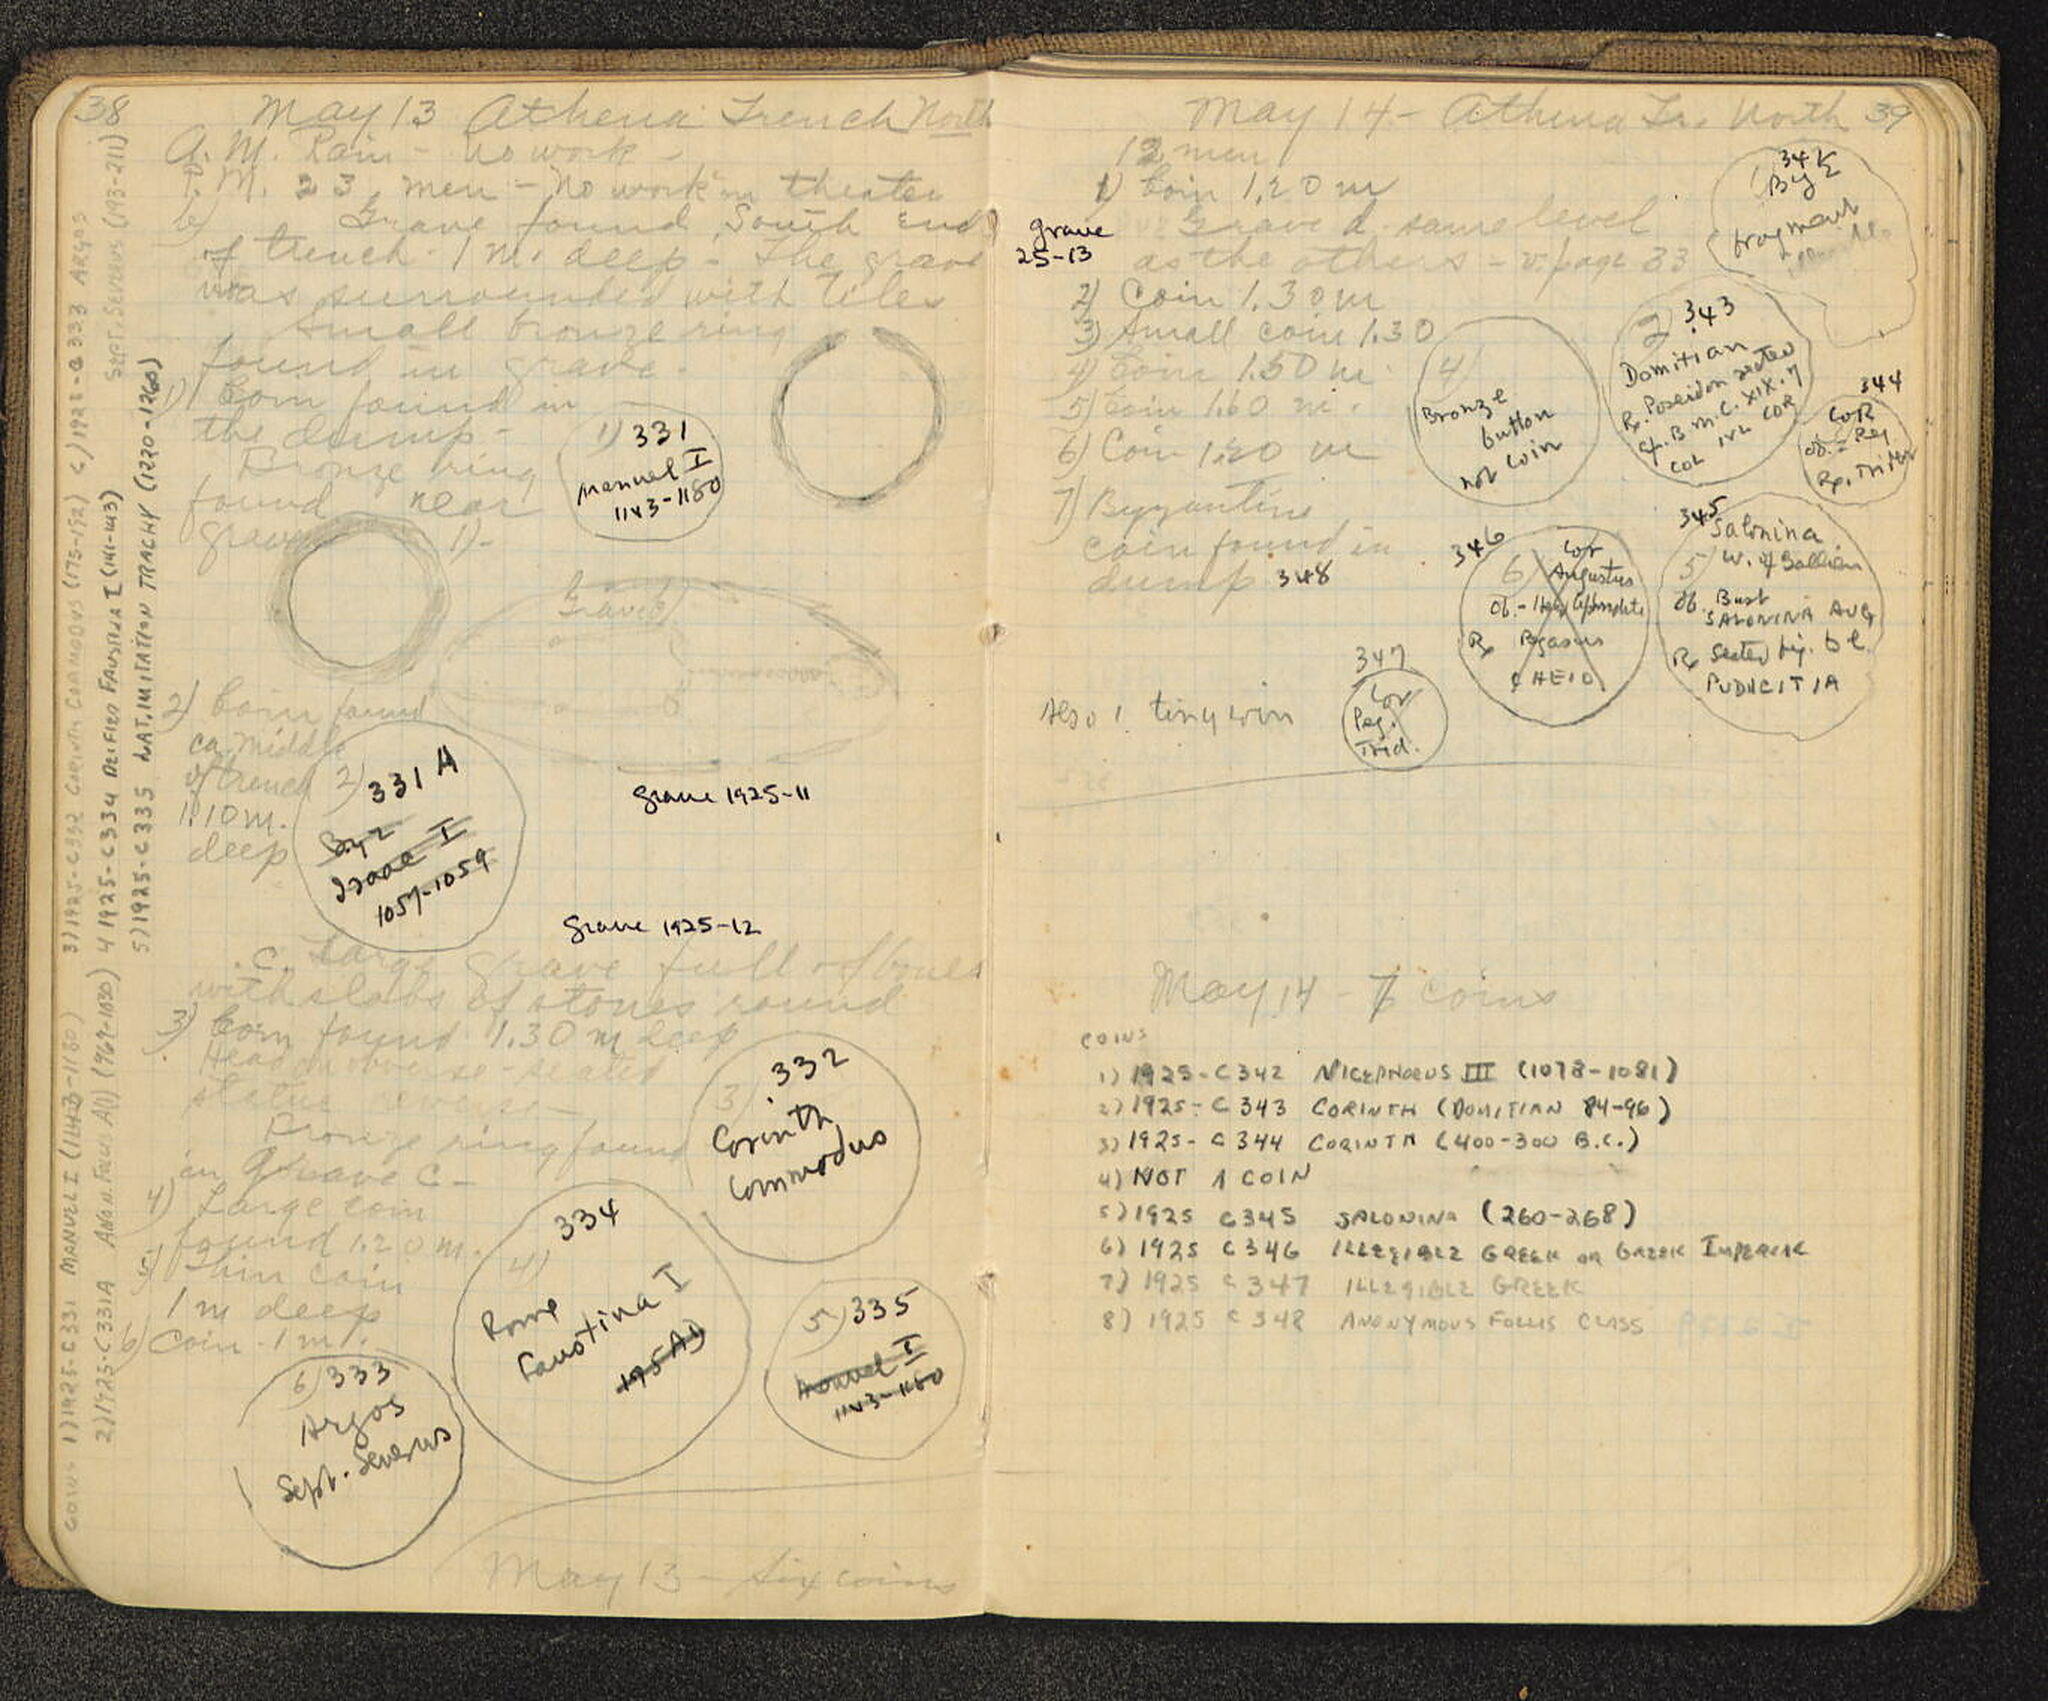 38
May 13 Athena Trench North
A.M. Rain - no work -
P.M. 23 men - no work in theater
b) Grave found South End
of trench 1 m. deep - The grave
was surrounded with tiles
small bronze ring
found in grave.
1) Coin found in
the dump -
Bronze ring
found near
grave 1)-
1) 331
Manuel I
1143-1180
Grave b)
2) Coin found
ca middle
of trench
1.10 m.
deep
2) 331 A
Byz
Isaac I
1057-1059
Grave 1925-11
Grave 1925-12
c. Large grave full of bones
with slabs of stones round
3) Coin found 1.30 m deep
Head on obverse - seated
statue reverse -
Bronze ring found
in Grave C -
3) 332
Corinth
Commodus
4) Large coin
found 1.20 m.
5) Thin coin
1 m deep
6) Coin - 1 m.
334
4)
Rome
Faustina I
175 AD
5) 335
Manuel I
1143-1180
6) 333
Argos
Sept. Severus
May 13 - Six coins
COINS 1) 1925-C331 MANUEL I (1143-1180) 3) 1925-C332 CORINTH COMMODUS (175-192) 6) 1925-C333 ARGOS
SEPT. SEVERUS (193-211)
2) 1925-C331A ANON. FOLLIS A(1) (969-1030) 4 1925-C334 DEIFIED FAUSTINA I (141-143)
5) 1925-C335 LAT. IMITATION TRACHY (1220-1260)
May 14 - Athena Tr. North 39
12 men
1) Coin 1.20 m
Grave
25-13
Grave d - same level
as the others - v. page 33
2) Coin 1.30 m
3) Small coin 1.30
4) Coin 1.50 m.
5) Coin 1.60 m.
6) Coin 1.20 m
7) Byzantine
coin found in
dump 348
Byz
fragment
4)
Bronze
button
not coin
2) 343
Domitian
R. Poseidon seated
cf. B.M.C. XIX.7
COL IVL COR
344
COR
ob. = Peg
Rp. Trident
345
Salonina
5) W. of Gallien
Ob. Bust
SALONINA AUG
R Seated fig. to l.
PUDICITIA
346
6) Cor
Augustus
Ob. - Head Aphrodite
R Pegasus
Also 1 tiny coin
347
Cor
Peg.
Trid.
May 14 - 7 coins
COINS
1) 1925-C342 NICEPHORUS III (1078-1081)
2) 1925-C343 CORINTH (DOMITIAN 84-96)
3) 1925-C344 CORINTH (400-300 B.C.)
4) NOT A COIN
5) 1925 C345 SALONINA (260-268)
6) 1925 C346 ILLEGIBLE GREEK OR GREEK IMPERIAL
7) 1925 C347 ILLEGIBLE GREEK
8) 1925 C348 ANONYMOUS FOLLIS CLASS